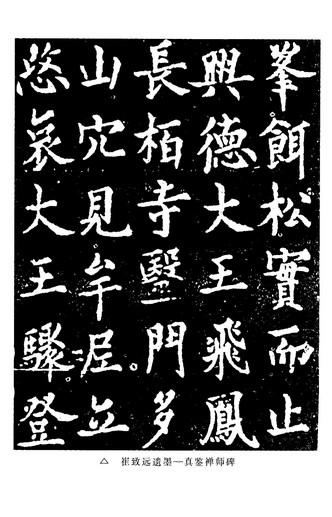 峯餌松實而止
興德大王飛鳳
長栢寺毉門多
山穴見牟立
愍哀大王驟登
△ 崔致远遗墨—真鉴禅师碑